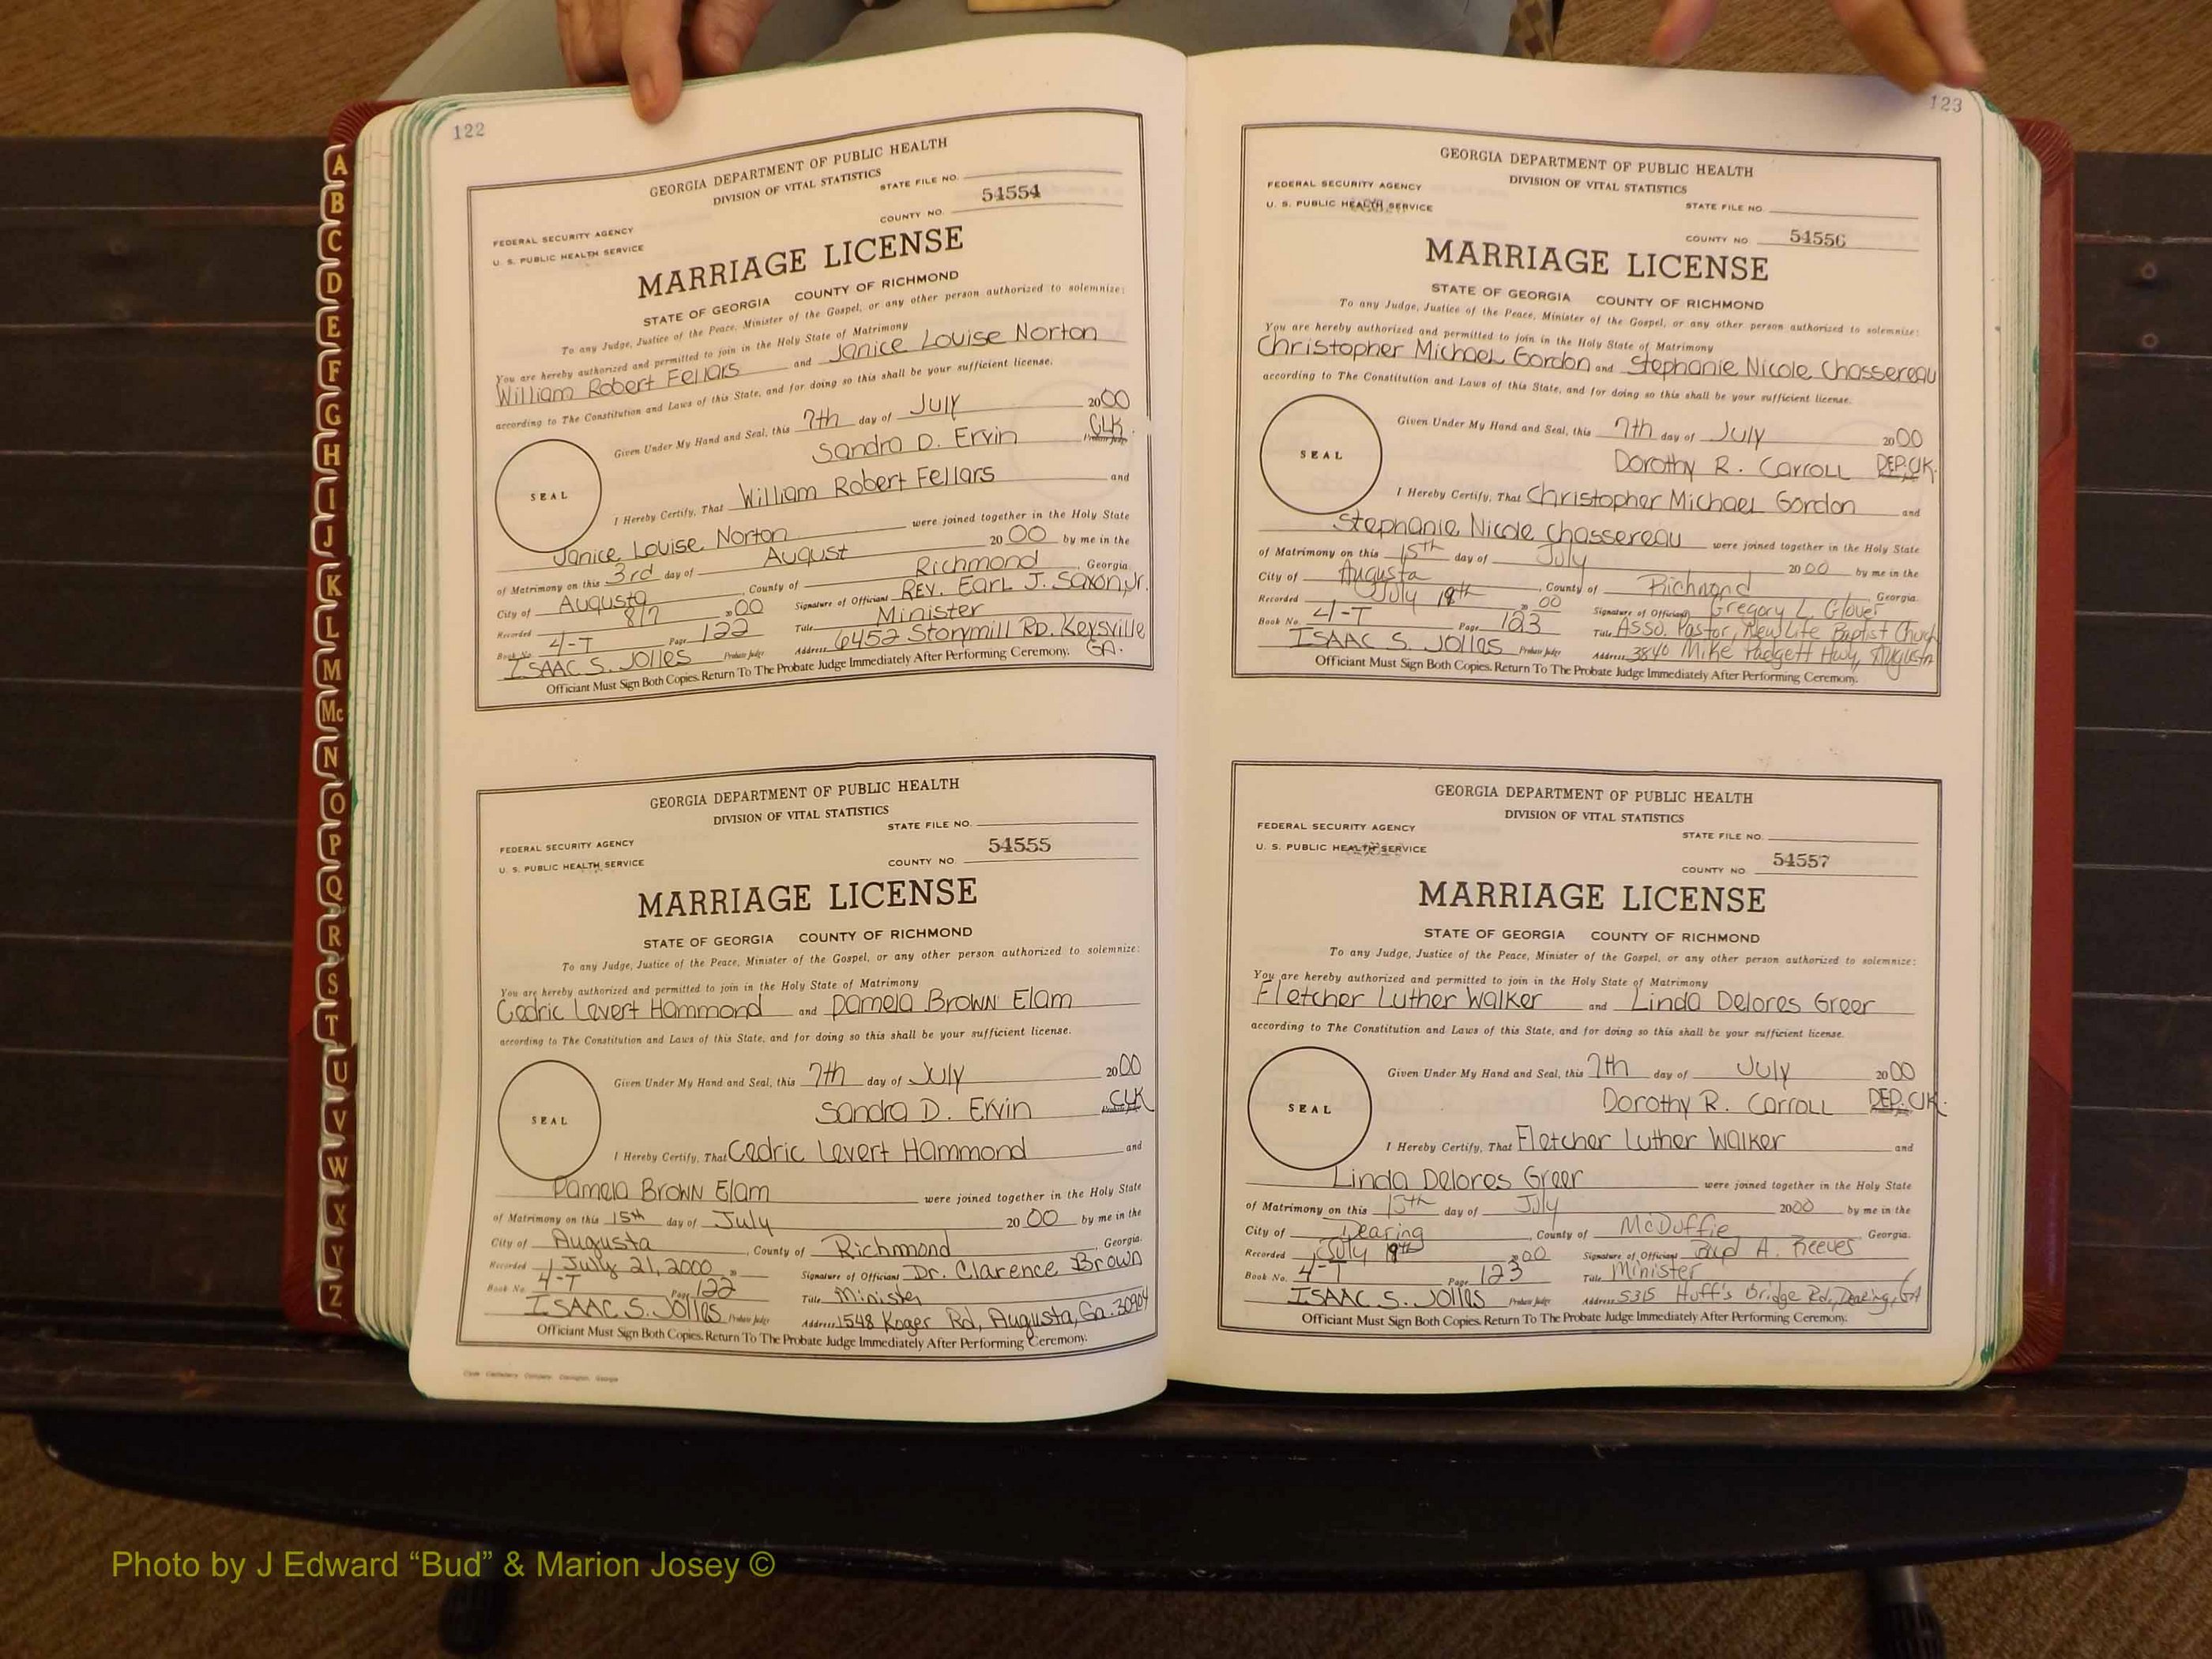 A
B
C
D
E
F
G
H
I
J
K
L
M
Mc
N
O
P
Q
R
S
T
U
V
W
X
Y
Z
122
GEORGIA DEPARTMENT OF PUBLIC HEALTH
DIVISION OF VITAL STATISTICS
STATE FILE NO.
COUNTY NO. 54554
FEDERAL SECURITY AGENCY
U. S. PUBLIC HEALTH SERVICE
MARRIAGE LICENSE
STATE OF GEORGIA COUNTY OF RICHMOND
To any Judge, Justice of the Peace, Minister of the Gospel, or any other person authorized to solemnize:
You are hereby authorized and permitted to join in the Holy State of Matrimony
William Robert Fellars and Janice Louise Norton
according to The Constitution and Laws of this State, and for doing so this shall be your sufficient license.
Given Under My Hand and Seal, this 7th day of July 2000
Sandra D. Ervin CLK.
SEAL
I Hereby Certify, That William Robert Fellars and
Janice Louise Norton were joined together in the Holy State
of Matrimony on this 3rd day of August 20 00 by me in the
City of Augusta, County of Richmond, Georgia.
Recorded 8/7 00 Signature of Officiant Rev. Earl J. Saxon, Jr.
Book No. 4-T Page 122 Title Minister
ISAAC S. JOLLES Probate Judge Address 6452 Storymill RD. Keysville GA.
Officiant Must Sign Both Copies. Return To The Probate Judge Immediately After Performing Ceremony.
GEORGIA DEPARTMENT OF PUBLIC HEALTH
DIVISION OF VITAL STATISTICS
STATE FILE NO.
FEDERAL SECURITY AGENCY
U. S. PUBLIC HEALTH SERVICE
COUNTY NO. 54555
MARRIAGE LICENSE
STATE OF GEORGIA COUNTY OF RICHMOND
To any Judge, Justice of the Peace, Minister of the Gospel, or any other person authorized to solemnize:
You are hereby authorized and permitted to join in the Holy State of Matrimony
Cedric Levert Hammond and Pamela Brown Elam
according to The Constitution and Laws of this State, and for doing so this shall be your sufficient license.
Given Under My Hand and Seal, this 7th day of July 2000
Sandra D. Ervin CLK
SEAL
I Hereby Certify, That Cedric Levert Hammond and
Pamela Brown Elam were joined together in the Holy State
of Matrimony on this 15th day of July 20 00 by me in the
City of Augusta, County of Richmond, Georgia.
Recorded July 21, 2000 20 Signature of Officiant Dr. Clarence Brown
Book No. 4-T Page 122 Title Minister
ISAAC S. JOLLES Probate Judge Address 1548 Koger Rd, Augusta, Ga. 30904
Officiant Must Sign Both Copies. Return To The Probate Judge Immediately After Performing Ceremony.
123
GEORGIA DEPARTMENT OF PUBLIC HEALTH
DIVISION OF VITAL STATISTICS
FEDERAL SECURITY AGENCY
U. S. PUBLIC HEALTH SERVICE
STATE FILE NO.
COUNTY NO. 54556
MARRIAGE LICENSE
STATE OF GEORGIA COUNTY OF RICHMOND
To any Judge, Justice of the Peace, Minister of the Gospel, or any other person authorized to solemnize:
You are hereby authorized and permitted to join in the Holy State of Matrimony
Christopher Michael Gordon and Stephanie Nicole Chassereau
according to The Constitution and Laws of this State, and for doing so this shall be your sufficient license.
Given Under My Hand and Seal, this 7th day of July 2000
Dorothy R. Carroll DEP. CLK.
SEAL
I Hereby Certify, That Christopher Michael Gordon and
Stephanie Nicole Chassereau were joined together in the Holy State
of Matrimony on this 15th day of July 2000 by me in the
City of Augusta, County of Richmond Georgia.
Recorded July 19th 20 00 Signature of Officiant Gregory L. Glover
Book No. 4-T Page 123 Title Asso. Pastor, New Life Baptist Church
ISAAC S. JOLLES Probate Judge Address 3840 Mike Padgett Hwy, Augusta
Officiant Must Sign Both Copies. Return To The Probate Judge Immediately After Performing Ceremony.
GEORGIA DEPARTMENT OF PUBLIC HEALTH
DIVISION OF VITAL STATISTICS
FEDERAL SECURITY AGENCY
U. S. PUBLIC HEALTH SERVICE
STATE FILE NO.
COUNTY NO. 54557
MARRIAGE LICENSE
STATE OF GEORGIA COUNTY OF RICHMOND
To any Judge, Justice of the Peace, Minister of the Gospel, or any other person authorized to solemnize:
You are hereby authorized and permitted to join in the Holy State of Matrimony
Fletcher Luther Walker and Linda Delores Greer
according to The Constitution and Laws of this State, and for doing so this shall be your sufficient license.
Given Under My Hand and Seal, this 7th day of July 2000
Dorothy R. Carroll DEP. CLK.
SEAL
I Hereby Certify, That Fletcher Luther Walker and
Linda Delores Greer were joined together in the Holy State
of Matrimony on this 15th day of July 2000 by me in the
City of Dearing, County of McDuffie, Georgia.
Recorded July 19th 2000 Signature of Officiant A. Reeves
Book No. 4-T Page 123 Title Minister
ISAAC S. JOLLES Probate Judge Address 5315 Huff's Bridge Rd, Dearing, GA
Officiant Must Sign Both Copies. Return To The Probate Judge Immediately After Performing Ceremony.
Photo by J Edward “Bud” & Marion Josey ©